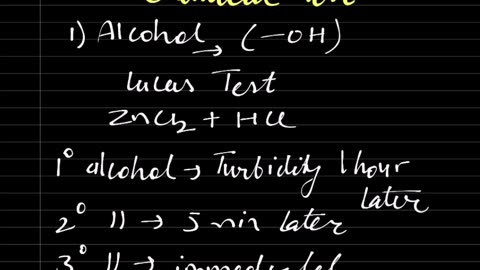 1) Alcohol → (-OH)
Lucas Test
ZnCl2 + HCl
1° alcohol → Turbidity 1 hour
later
2° 11 → 5 min later
3° 11 →